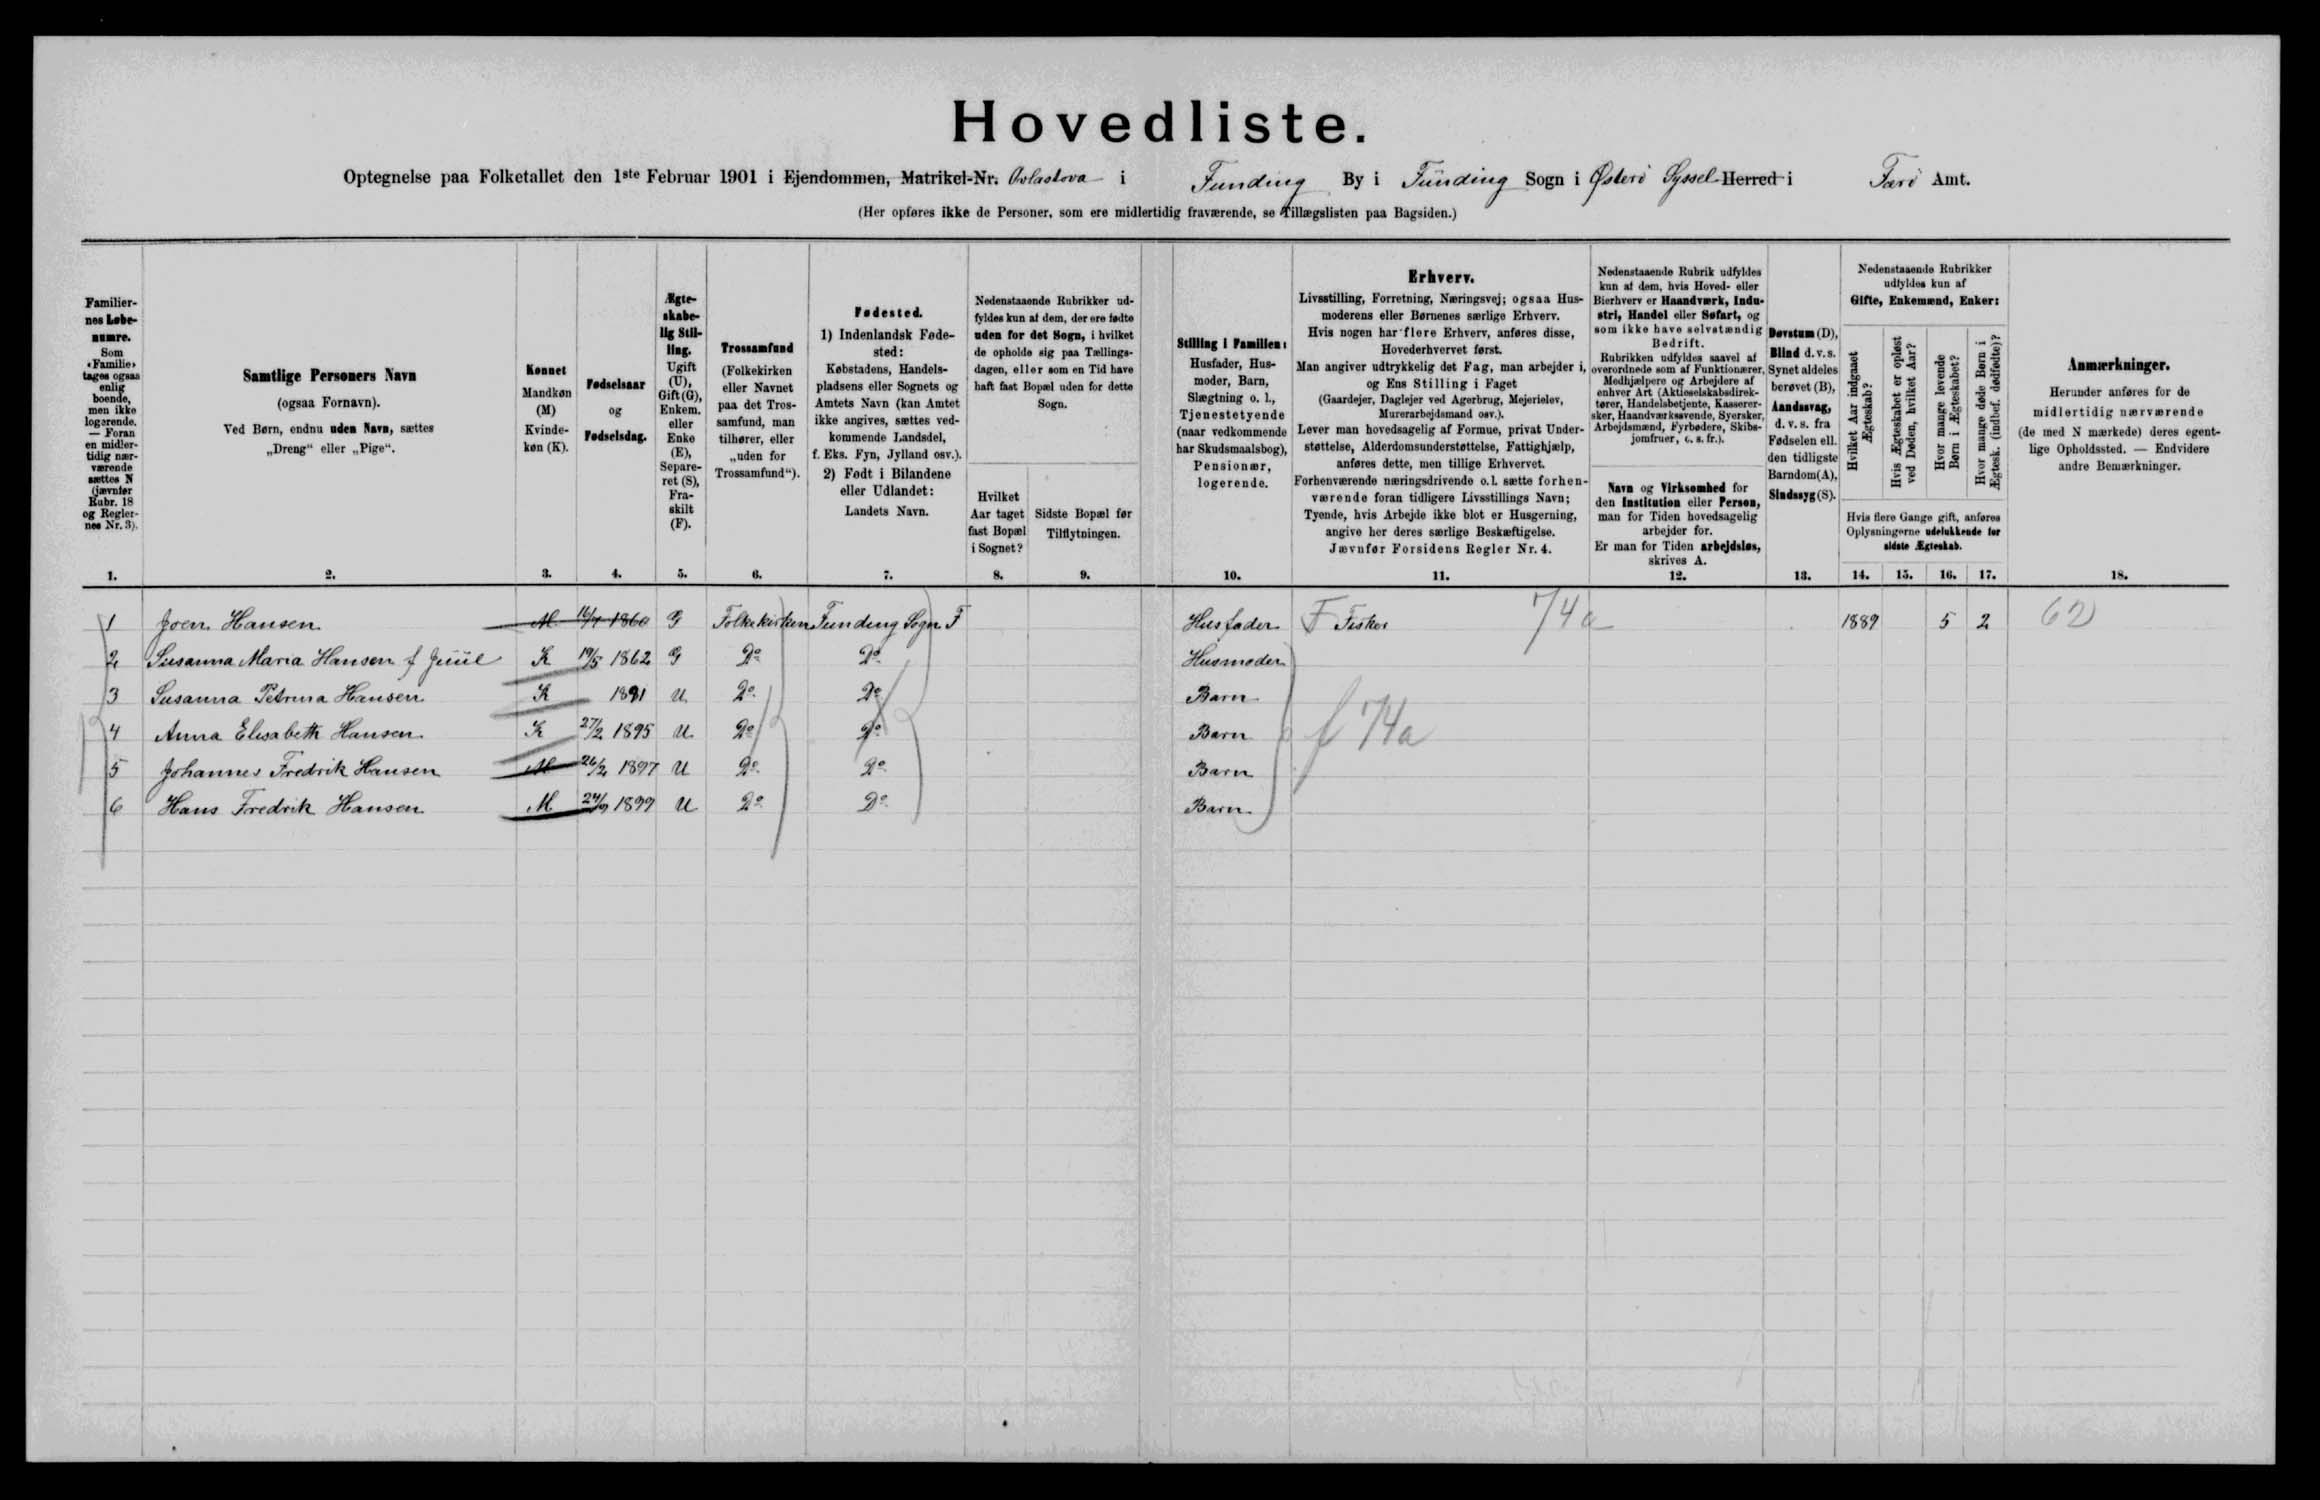 Hovedliste.
Optegnelse paa Folketallet den 1ste Februar 1901 i Ejendommen, Matrikel-Nr. Ovlastova i Funding By i Funding Sogn i Østerö Syssel Herred i Færö Amt.
(Her opføres ikke de Personer, som ere midlertidig fraværende, se Tillægslisten paa Bagsiden.)
Familier-
nes Løbe-
numre.
Som
«Familie»
tages ogsaa
enlig
boende,
men ikke
logerende.
— Foran
en midler-
tidig nær-
værende
sættes N
(jævnfør
Rubr. 18
og Regler-
nes Nr. 3).
1.
Samtlige Personers Navn
(ogsaa Fornavn).
Ved Børn, endnu uden Navn, sættes
„Dreng“ eller „Pige“.
2.
Kønnet
Mandkøn
(M)
Kvinde-
køn (K).
3.
Fødselsaar
og
Fødselsdag.
4.
Ægte-
skabe-
lig Stil-
ling.
Ugift
(U),
Gift (G),
Enkem.
eller
Enke
(E),
Separe-
ret (S),
Fra-
skilt
(F).
5.
Trossamfund
(Folkekirken
eller Navnet
paa det Tros-
samfund, man
tilhører, eller
„uden for
Trossamfund“).
6.
Fødested.
1) Indenlandsk Føde-
sted:
Købstadens, Handels-
pladsens eller Sognets og
Amtets Navn (kan Amtet
ikke angives, sættes ved-
kommende Landsdel,
f. Eks. Fyn, Jylland osv.).
2) Født i Bilandene
eller Udlandet:
Landets Navn.
7.
Nedenstaaende Rubrikker ud-
fyldes kun af dem, der ere fødte
uden for det Sogn, i hvilket
de opholde sig paa Tællings-
dagen, eller som en Tid have
haft fast Bopæl uden for dette
Sogn.
Hvilket
Aar taget
fast Bopæl
i Sognet?
8.
Sidste Bopæl før
Tilflytningen.
9.
Stilling i Familien:
Husfader, Hus-
moder, Barn,
Slægtning o. l.,
Tjenestetyende
(naar vedkommende
har Skudsmaalsbog),
Pensionær,
logerende.
10.
Erhverv.
Livsstilling, Forretning, Næringsvej; ogsaa Hus-
moderens eller Børnenes særlige Erhverv.
Hvis nogen har flere Erhverv, anføres disse,
Hovederhvervet først.
Man angiver udtrykkelig det Fag, man arbejder i,
og Ens Stilling i Faget
(Gaardejer, Daglejer ved Agerbrug, Mejerielev,
Murerarbejdsmand osv.).
Lever man hovedsagelig af Formue, privat Under-
støttelse, Alderdomsunderstøttelse, Fattighjælp,
anføres dette, men tillige Erhvervet.
Forhenværende næringsdrivende o. l. sætte forhen-
værende foran tidligere Livsstillings Navn;
Tyende, hvis Arbejde ikke blot er Husgerning,
angive her deres særlige Beskæftigelse.
Jævnfør Forsidens Regler Nr. 4.
11.
Nedenstaaende Rubrik udfyldes
kun af dem, hvis Hoved- eller
Bierhverv er Haandværk, Indu-
stri, Handel eller Søfart, og
som ikke have selvstændig
Bedrift.
Rubrikken udfyldes saavel af
overordnede som af Funktionærer,
Medhjælpere og Arbejdere af
enhver Art (Aktieselskabsdirek-
tører, Handelsbetjente, Kasserer-
sker, Haandværkssvende, Syersker,
Arbejdsmænd, Fyrbødere, Skibs-
jomfruer, o. s. fr.).
Navn og Virksomhed for
den Institution eller Person,
man for Tiden hovedsagelig
arbejder for.
Er man for Tiden arbejdsløs,
skrives A.
12.
Døvstum (D),
Blind d. v. s.
Synet aldeles
berøvet (B),
Aandssvag,
d. v. s. fra
Fødselen ell.
den tidligste
Barndom (A),
Sindssyg (S).
13.
Nedenstaaende Rubrikker
udfyldes kun af
Gifte, Enkemænd, Enker:
Hvilket Aar indgaaet
Ægteskab?
Hvis Ægteskabet er opløst
ved Døden, hvilket Aar?
Hvor mange levende
Børn i Ægteskabet?
Hvor mange døde Børn i
Ægtesk. (indbef. dødfødte)?
Hvis flere Gange gift, anføres
Oplysningerne udelukkende for
sidste Ægteskab.
14. 15. 16. 17.
Anmærkninger.
Herunder anføres for de
midlertidig nærværende
(de med N mærkede) deres egent-
lige Opholdssted. — Endvidere
andre Bemærkninger.
18.
1 Joen Hansen M 16/7 1860 G Folkekirken Funding Sogn F Husfader F Fisker 74a 1889 5 2 62
2 Susanna Maria Hansen f Juul K 19/5 1862 G Do Do Husmoder
3 Susanna Petrina Hansen K 1891 U Do Do Barn
4 Anna Elisabeth Hansen K 27/2 1895 U Do Do Barn f 74a
5 Johannes Fredrik Hansen M 26/2 1897 U Do Do Barn
6 Hans Fredrik Hansen M 24/9 1899 U Do Do Barn